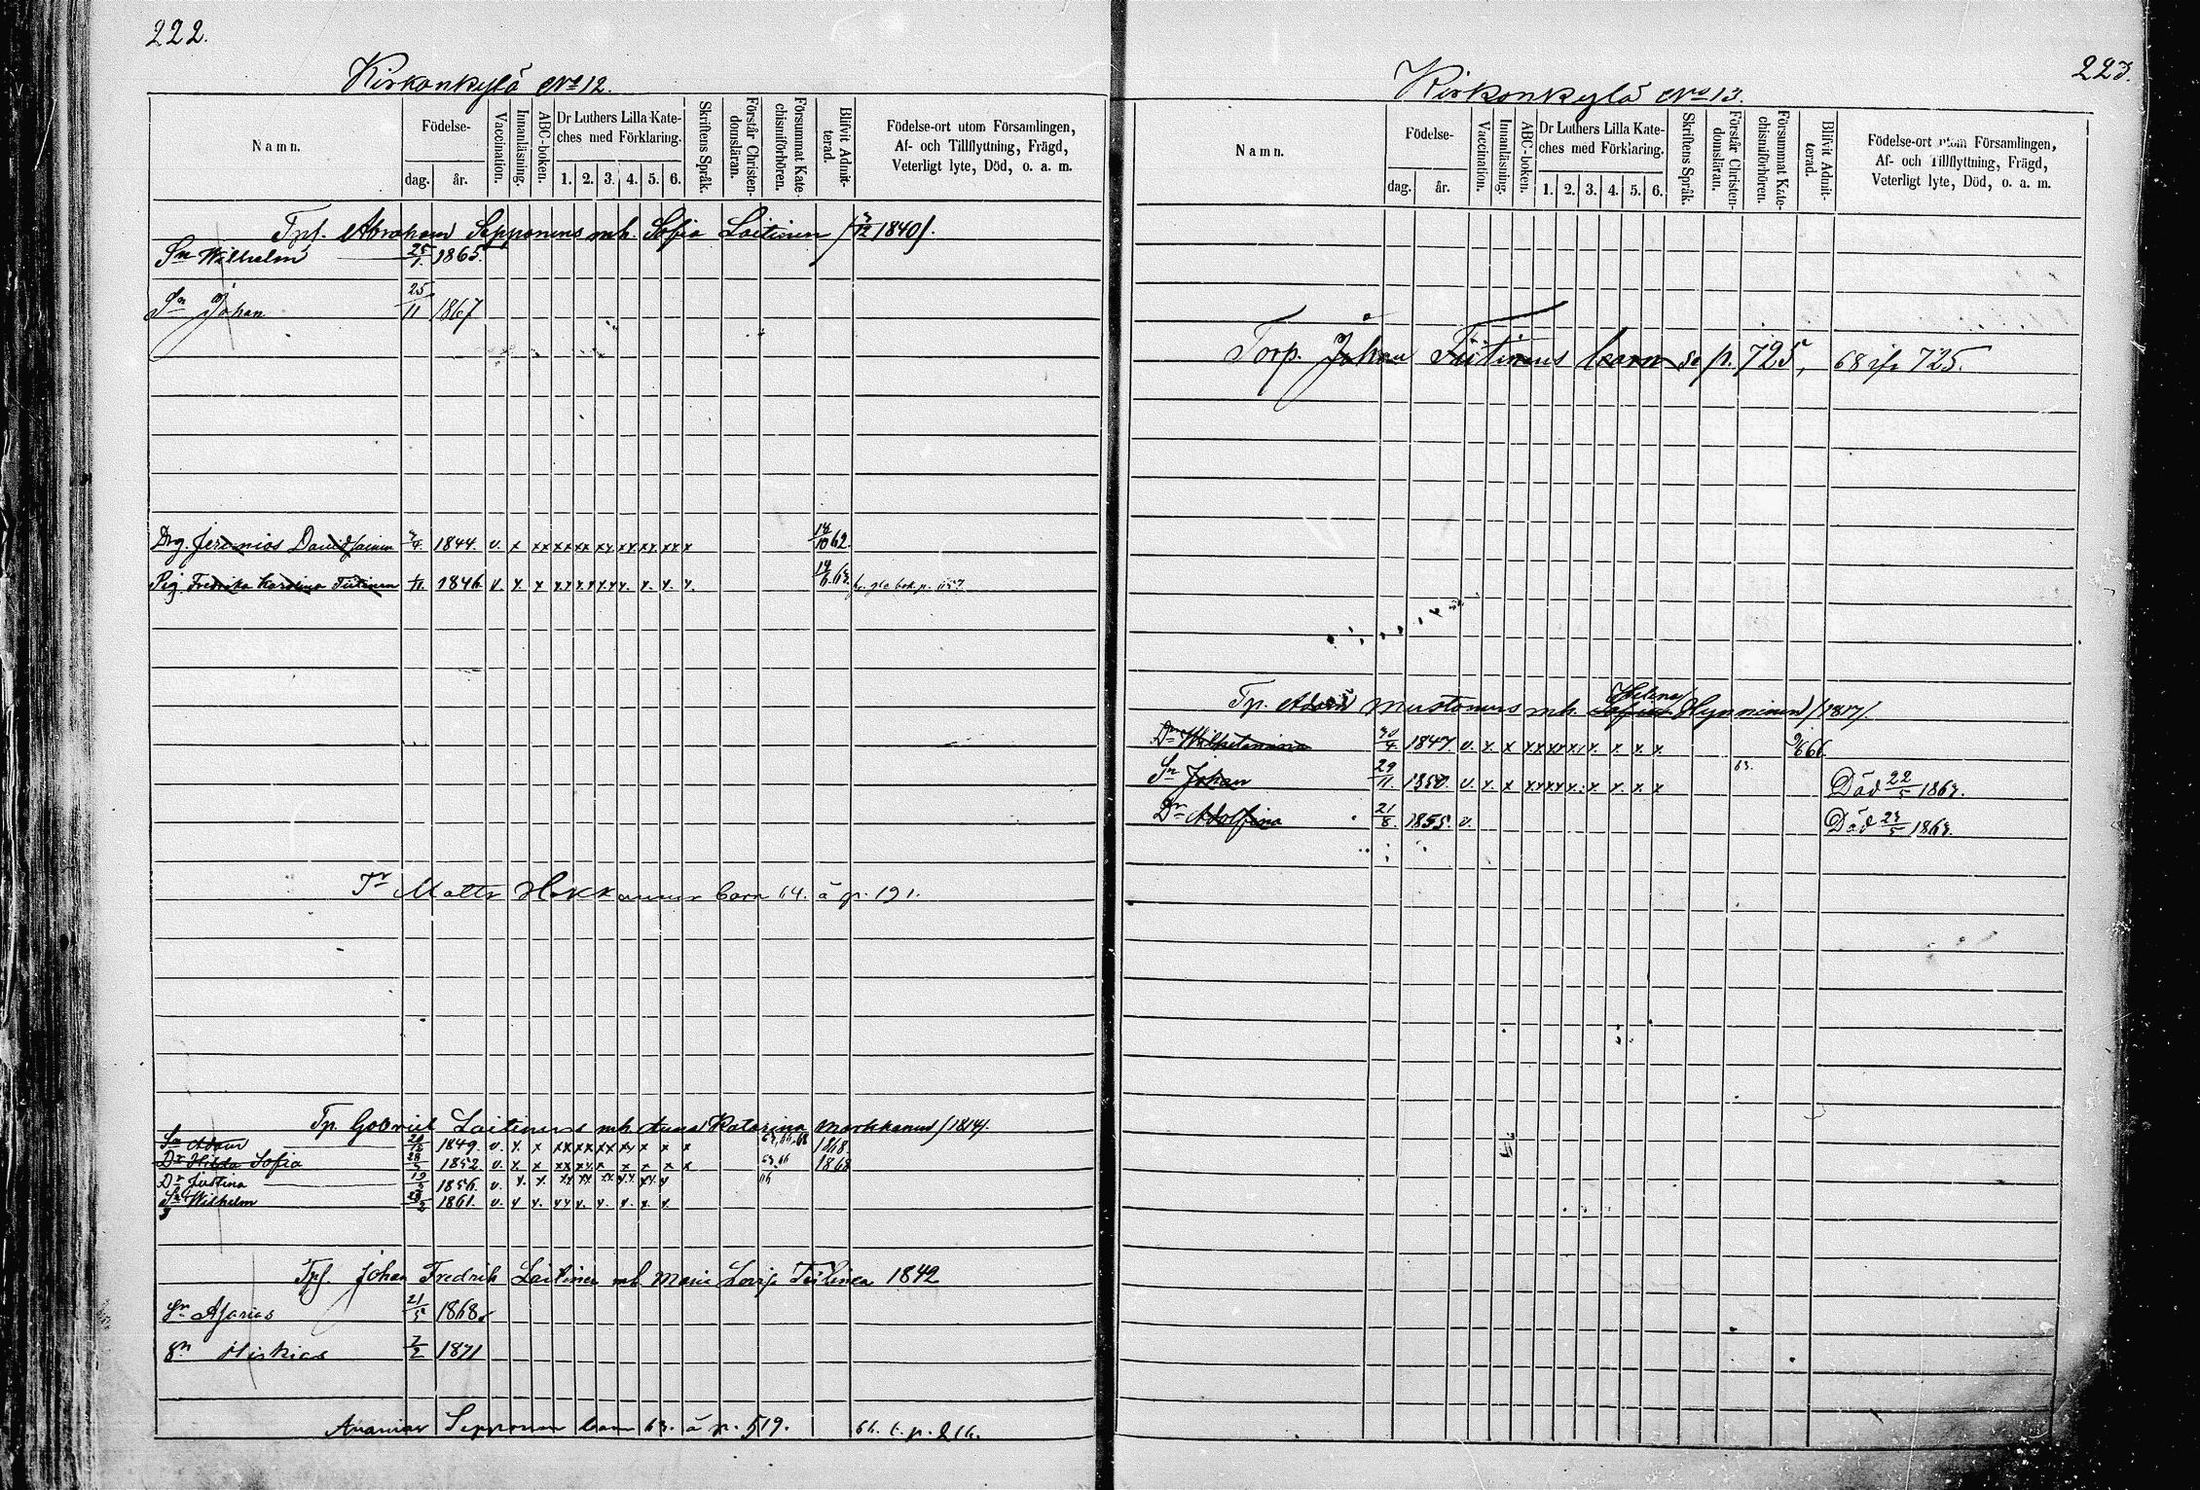 222.
Kirkonkylä No 12.
Namn.
Födelse-
dag. år.
Vaccination.
Innanläsning.
ABC-boken.
Dr Luthers Lilla Kate-
ches med Förklaring.
1. 2. 3. 4. 5. 6.
Skriftens Språk.
Förstår Christen-
domsläran.
Försummat Kate-
chismiförhören.
Blifvit Admit-
terad.
Födelse-ort utom Församlingen,
Af- och Tillflyttning, Frägd,
Veterligt lyte, Död, o. a. m.
Tpf. Abraham Sepponens mh. Sofia Laitinen /3/12 1840/.
Sn Wilhelm 25/1. 1865.
Sn Johan 25/11 1867
Drg. Jeremias Davidsainen 1844. v. x xx xx xx xx xx xx x 62.
Pig. Fredrika Karolina Tiitinen 1846 v. x. x
Tr Matts Hokkanens barn 64. å p. 191.
Tp. Gabriel Laitinens mh Anna Katarina Markkanus /1814/.
Sn Adam 1849. v. x. x xx xx xx xx x x x 1868.
Dr Hilda Sofia 1852 v. x x 1868
Dr Justina 1856. v. x. x.
Sn Wilhelm 1861. v.
Tpf. Johan Fredrik Laitinen mh Maria Lovisa Tiitinen 1842
Sn Asarias 21/5 1868.
Sn Hiskias 2/2 1871
Ananias Sepponen barn 63. å p. 519. 66. å p. 216.
223.
Kirkonkylä No 13.
Namn.
Födelse-
dag. år.
Vaccination.
Innanläsning.
ABC-boken.
Dr Luthers Lilla Kate-
ches med Förklaring.
1. 2. 3. 4. 5. 6.
Skriftens Språk.
Förstår Christen-
domsläran.
Försummat Kate-
chismiförhören.
Blifvit Admit-
terad.
Födelse-ort utom Församlingen,
Af- och Tillflyttning, Frägd,
Veterligt lyte, Död, o. a. m.
Torp. Johan Tiitinens barn se p. 725, 68 725.
Helena
Tp. Adam Mustonens mh. Hynninen /1817/.
Dr Wilhelmina 30/4 1847 v. x x xx xx x. x x x x 9/6 66.
63.
Sn Johan 29/11. 1850. v. x. x xx xx x. x x. x. x Död 22/5 1863.
Dr Adolfina 21/8. 1855. v. Död 23/5 1863.